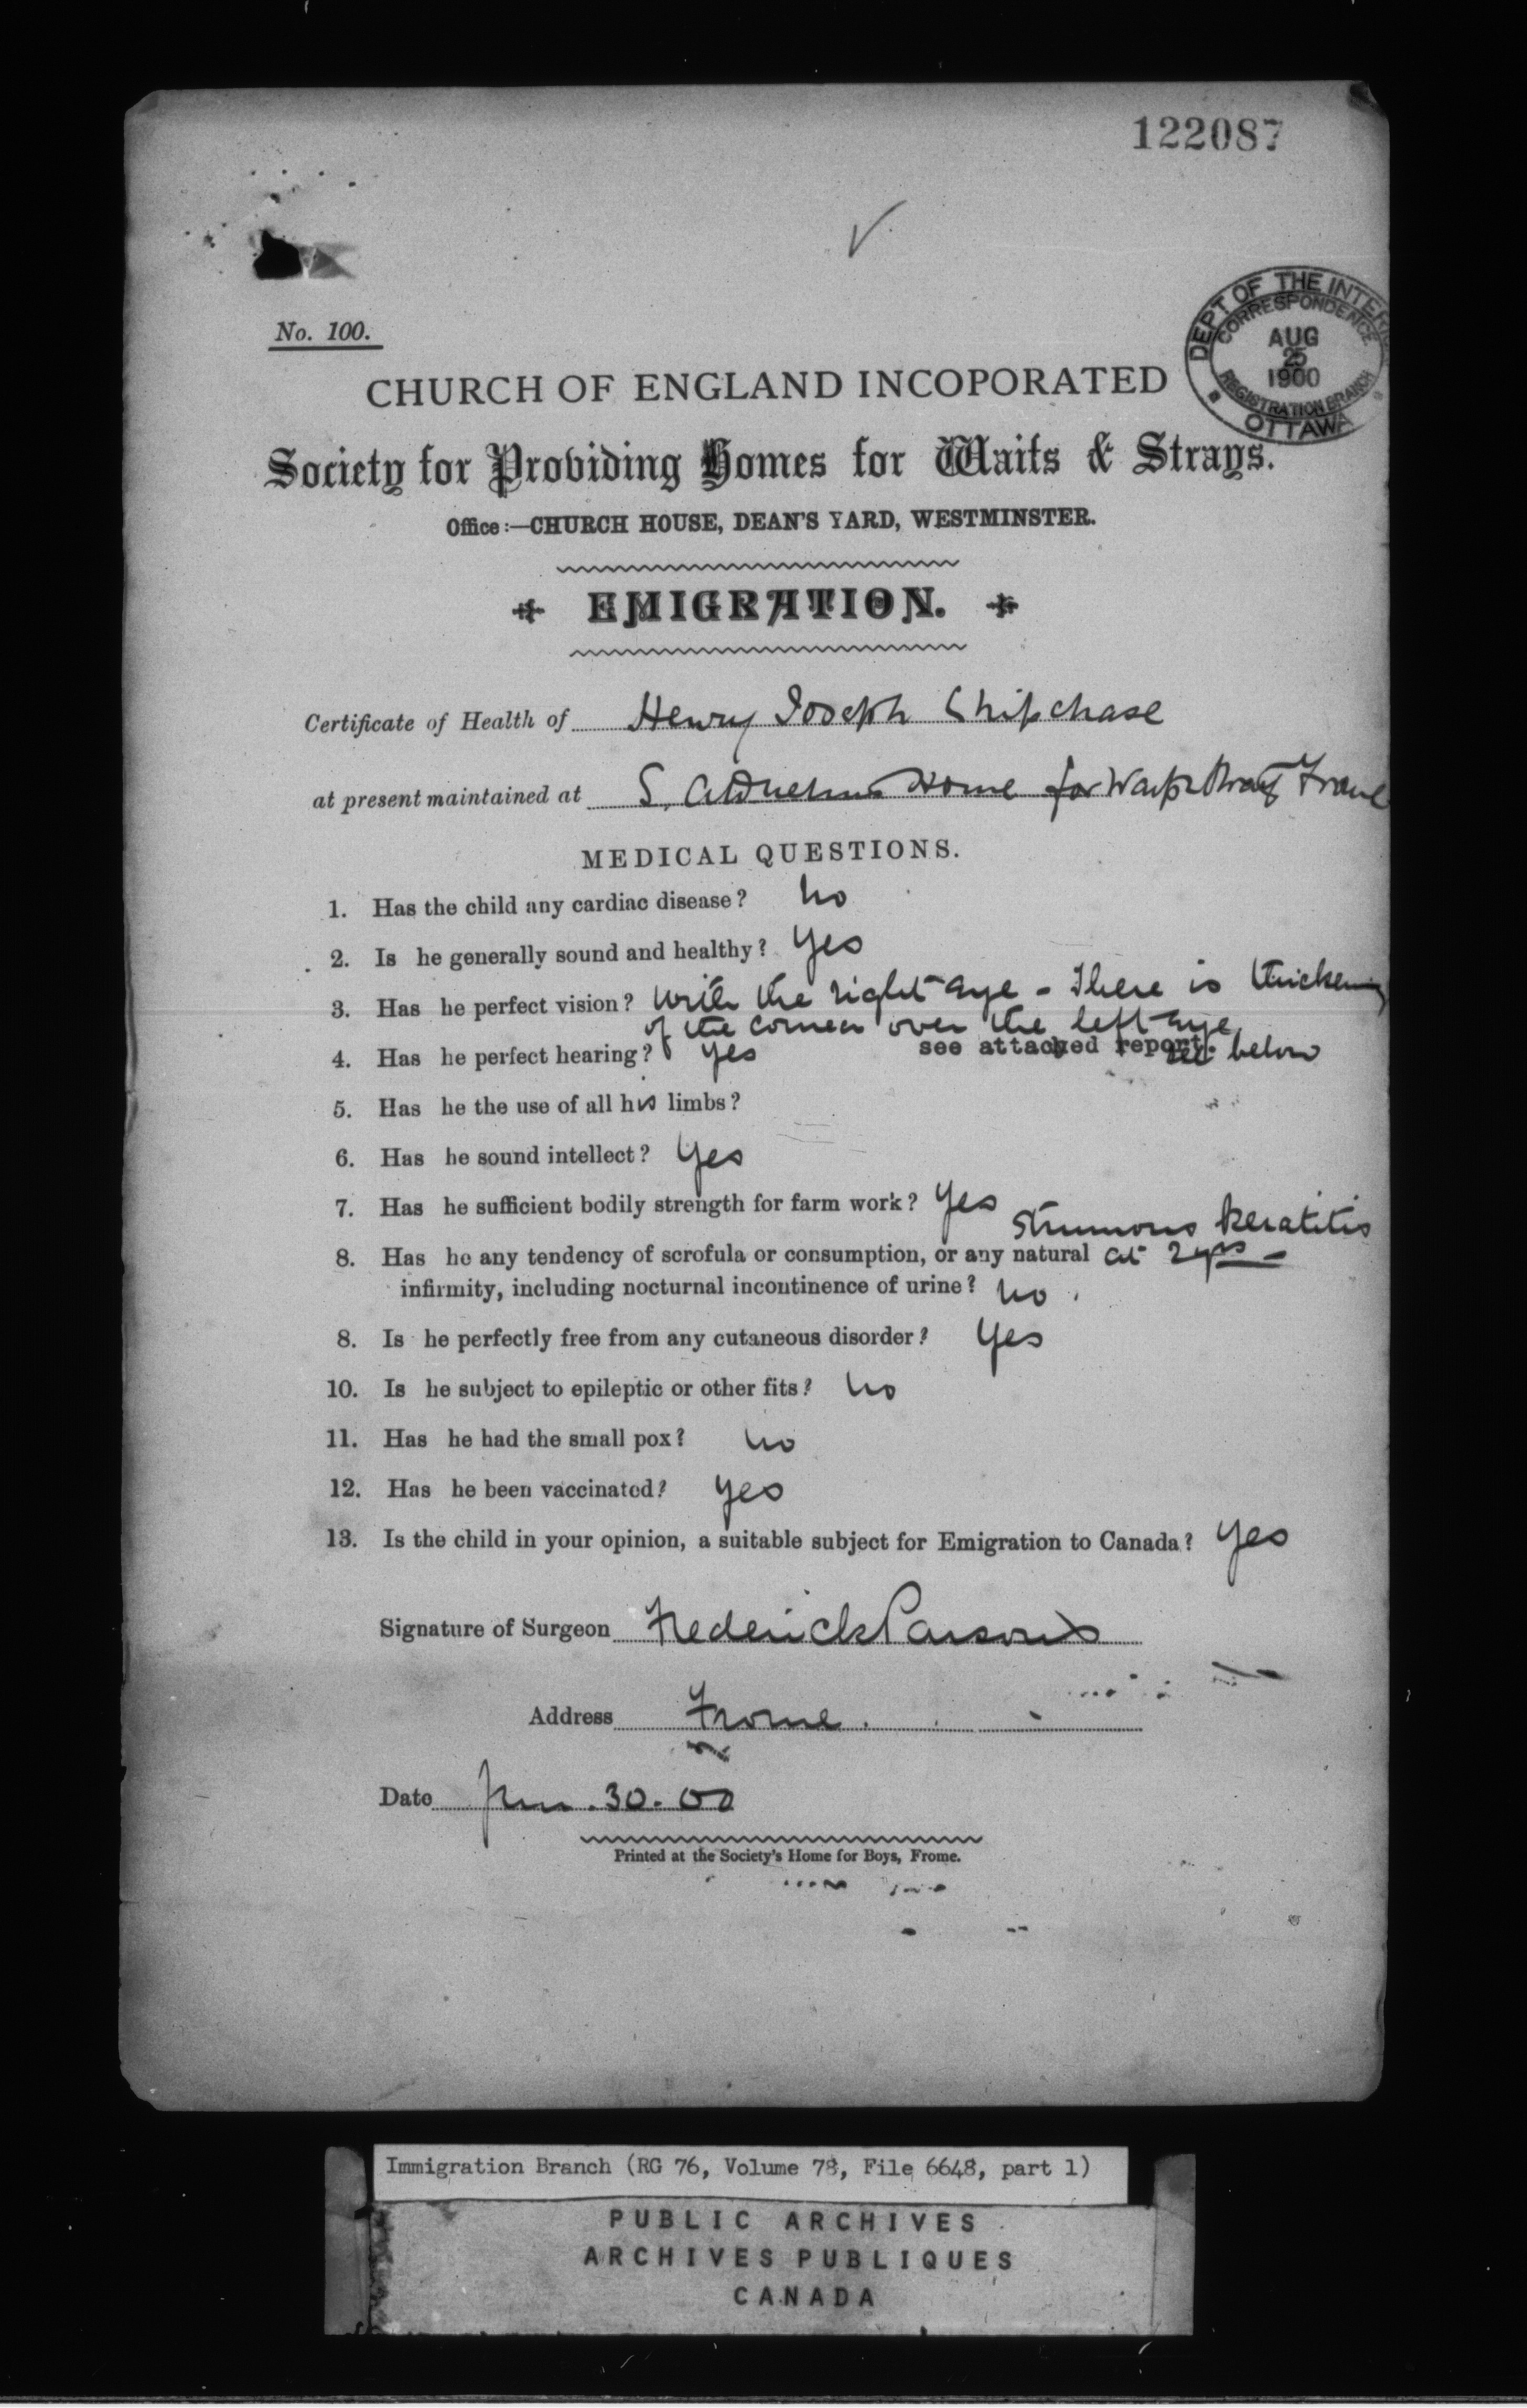 122087
No. 100.
DEPT OF THE INTERIOR
CORRESPONDENCE
AUG
25
1900
REGISTRATION BRANCH
OTTAWA
CHURCH OF ENGLAND INCOPORATED
Society for Providing Homes for Waifs & Strays.
Office:—CHURCH HOUSE, DEAN'S YARD, WESTMINSTER.
EMIGRATION.
Certificate of Health of Henry Joseph Shipchase
at present maintained at S. Home for Waifs & Strays Frome
MEDICAL QUESTIONS.
1. Has the child any cardiac disease? no
2. Is he generally sound and healthy? Yes
3. Has he perfect vision? With the right eye - There is thickening
of the cornea over the left eye
see attached report. see below
4. Has he perfect hearing? Yes
5. Has he the use of all his limbs?
6. Has he sound intellect? Yes
7. Has he sufficient bodily strength for farm work? Yes
Strumous Keratitis
8. Has he any tendency of scrofula or consumption, or any natural at 2 yrs -
infirmity, including nocturnal incontinence of urine? no.
8. Is he perfectly free from any cutaneous disorder? Yes
10. Is he subject to epileptic or other fits? no
11. Has he had the small pox? no
12. Has he been vaccinated? Yes
13. Is the child in your opinion, a suitable subject for Emigration to Canada? Yes
Signature of Surgeon Frederick Parsons
Address Frome.
Date Jun. 30. 00
Printed at the Society's Home for Boys, Frome.
Immigration Branch (RG 76, Volume 78, File 6648, part 1)
PUBLIC ARCHIVES
ARCHIVES PUBLIQUES
CANADA